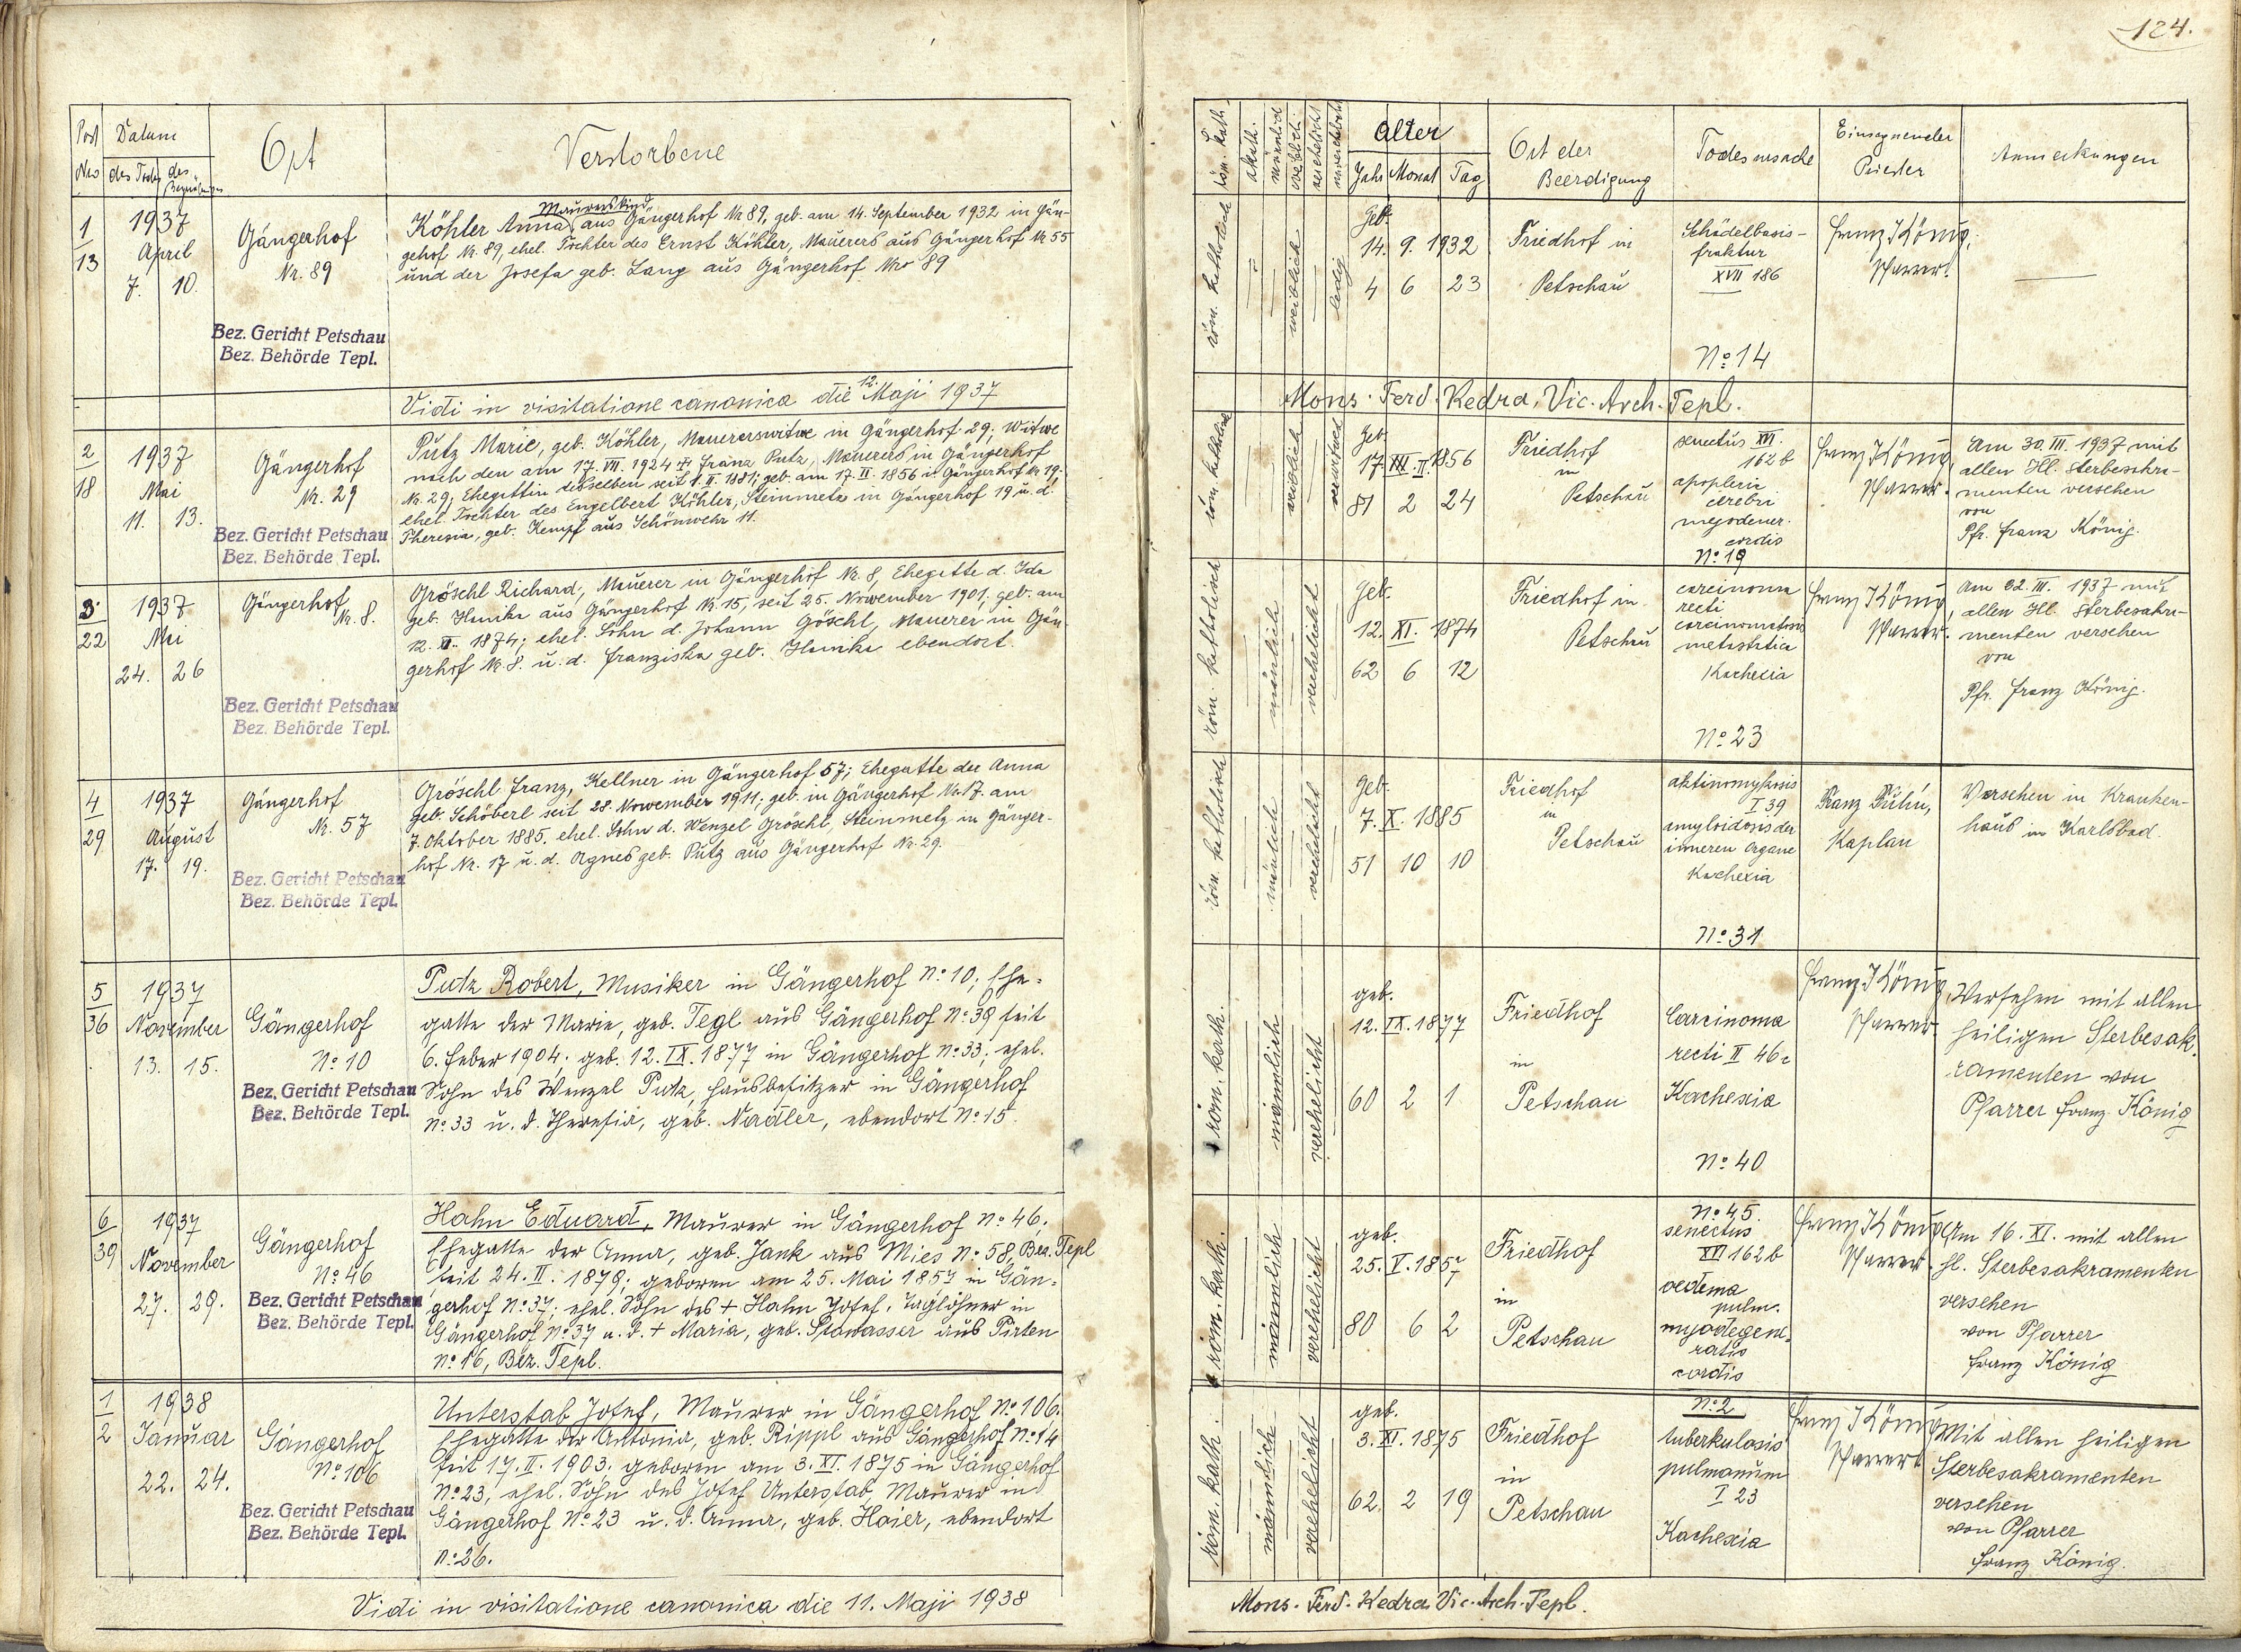 124.
Post Nro
Datum
des Todes
des Begräbnisses
Ort
Verstorbene
röm. kath.
akath.
männlich
weiblich
verehelicht
unverehelicht
Alter
Jahr Monat Tag
Ort der
Beerdigung
Todesursache
Einsegnender
Priester
Anmerkungen
1
13
1937
April
7. 10.
Gängerhof
Nr. 89
Bez. Gericht Petschau
Bez. Behörde Tepl.
Maurerskind
Köhler Anna aus Gängerhof Nr 89, geb. am 14. September 1932 in Gän-
gehof Nr. 89, ehel. Tochter des Ernst Köhler, Mauerers aus Gängerhof Nr 55
und der Josefa geb. Lang aus Gängerhof Nro 89
röm. katholisch
weiblich
ledig
Geb.
14. 9. 1932
4 6 23
Friedhof in
Petschau
Schädelbasis-
fraktur
XVII 186
No 14
Franz König,
Pfarrer.
Vidi in visitatione canonica die 12. Maji 1937
Mons. Ferd. Kedra, Vic. Arch. Tepl.
2
18
1937
Mai
11. 13.
Gängerhof
Nr. 29
Bez. Gericht Petschau
Bez. Behörde Tepl.
Putz Marie, geb. Köhler, Mauererswitwe in Gängerhof 29; Witwe
nach den am 17. VII. 1924 + Franz Putz, Mauerers in Gängerhof
Nr. 29; Ehegattin desselben seit 1. II. 1881; geb. am 17. II. 1856 in Gängerhof Nr 19;
ehel. Tochter des Engelbert Köhler, Steinmetz in Gängerhof 19 u. d.
Theresia, geb. Kempf aus Schönwehr 11.
röm. katholisch
weiblich
verwitwet
Geb.
17. II. 1856
81 2 24
Friedhof
in
Petschau
senectus XVI.
162 b
apoplexia
cerebri
myodener.
cordis
No 19
Franz König,
Pfarrer.
Am 30. III. 1937 mit
allen Hl. Sterbesakra-
menten versehen
von
Pfr. Franz König.
3
22
1937
Mai
24. 26
Gängerhof
Nr. 8.
Bez. Gericht Petschau
Bez. Behörde Tepl.
Gröschl Richard, Mauerer in Gängerhof Nr. 8, Ehegatte d. Ida
geb. Hunka aus Gängerhof Nr. 15, seit 25. November 1901, geb. am
12. XI. 1874; ehel. Sohn d. Johann Göschl, Mauerer in Gän-
gerhof Nr. 8. u. d. Franziska geb. Hunka ebendort.
röm. katholisch
männlich
verehelicht
Geb.
12. XI. 1874
62 6 12
Friedhof in
Petschau
carcinoma
recti
carcinomatosis
metastatica
Kachexia
No 23
Franz König,
Pfarrer.
Am 22. III. 1937 mit
allen Hl. Sterbesakra-
menten versehen
von
Pfr. Franz König.
4
29
1937
August
17. 19.
Gängerhof
Nr. 57
Bez. Gericht Petschau
Bez. Behörde Tepl.
Gröschl Franz, Kellner in Gängerhof 57; Ehegatte der Anna
geb. Schöberl seit 28. November 1911; geb. in Gängerhof Nr. 17. am
7. Oktober 1885. ehel. Sohn d. Wenzel Gröschl, Steinmetz in Gänger-
hof Nr. 17 u. d. Agnes geb. Putz aus Gängerhof Nr. 29.
röm. katholisch
männlich
verehelicht
Geb.
7. X. 1885
51 10 10
Friedhof
in
Petschau
aktinomykosis
I 39
amyloidosis der
inneren Organe
Kachexia
No 31
Franz
Kaplan
Versehen in Kranken-
haus in Karlsbad.
5
36
1937
November
13. 15.
Gängerhof
No 10
Bez. Gericht Petschau
Bez. Behörde Tepl.
Putz Robert, Musiker in Gängerhof No 10; Ehe-
gatte der Marie, geb. Tegl aus Gängerhof No 39 seit
6. Feber 1904; geb. 12. IX. 1877 in Gängerhof No 33; ehel.
Sohn des Wenzel Putz, Hausbesitzer in Gängerhof
No 33 u. d. Theresia, geb. Nadler, ebendort No 15.
röm. kath.
männlich
verehelicht
geb.
12. IX. 1877
60 2 1
Friedhof
in
Petschau
Carcinoma
recti II 46c
Kachexia
No 40
Franz König,
Pfarrer.
Versehen mit allen
heiligen Sterbesak-
ramenten von
Pfarrer Franz König
6
39
1937
November
27. 29.
Gängerhof
No 46
Bez. Gericht Petschau
Bez. Behörde Tepl.
Hahn Eduard, Maurer in Gängerhof No 46;
Ehegatte der Anna, geb. Jank aus Mies No 58, Bez. Tepl
seit 24. II. 1879; geboren am 25. Mai 1857 in Gän-
gerhof No 37; ehel. Sohn des + Hahn Josef, Taglöhner in
Gängerhof No 37 u. d. + Maria, geb. Stowasser aus Pirten
No 16, Bez. Tepl.
röm. kath.
männlich
verehelicht
geb.
25. V. 1857
80 6 2
Friedhof
in
Petschau
No 45.
senectus
XVI 162 b
oedema
pulm.
myodegene-
ratio
cordis
Franz König
Pfarrer.
Am 16. XI. mit allen
hl. Sterbesakramenten
versehen
von Pfarrer
Franz König
1
2
1938
Januar
22. 24.
Gängerhof
No 106
Bez. Gericht Petschau
Bez. Behörde Tepl.
Unterstab Josef, Maurer in Gängerhof No 106.
Ehegatte der Antonia, geb. Rippl aus Gängerhof No 14
seit 17. II. 1903. geboren am 3. XI. 1875 in Gängerhof
No 23, ehel. Sohn des Josef Unterstab Maurer in
Gängerhof No 23 u. d. Anna, geb. Haier, ebendort
No 26.
röm. kath.
männlich
verehelicht
geb.
3. XI. 1875
62. 2 19
Friedhof
in
Petschau
No 2
tuberkulosis
pulmanum
I 23
Kachexia
Franz König
Pfarrer
Mit allen heiligen
Sterbesakramenten
versehen
von Pfarrer
Franz König.
Vidi in visitatione canonica die 11. Maji 1938
Mons. Ferd. Kedra Vic. Arch. Tepl.